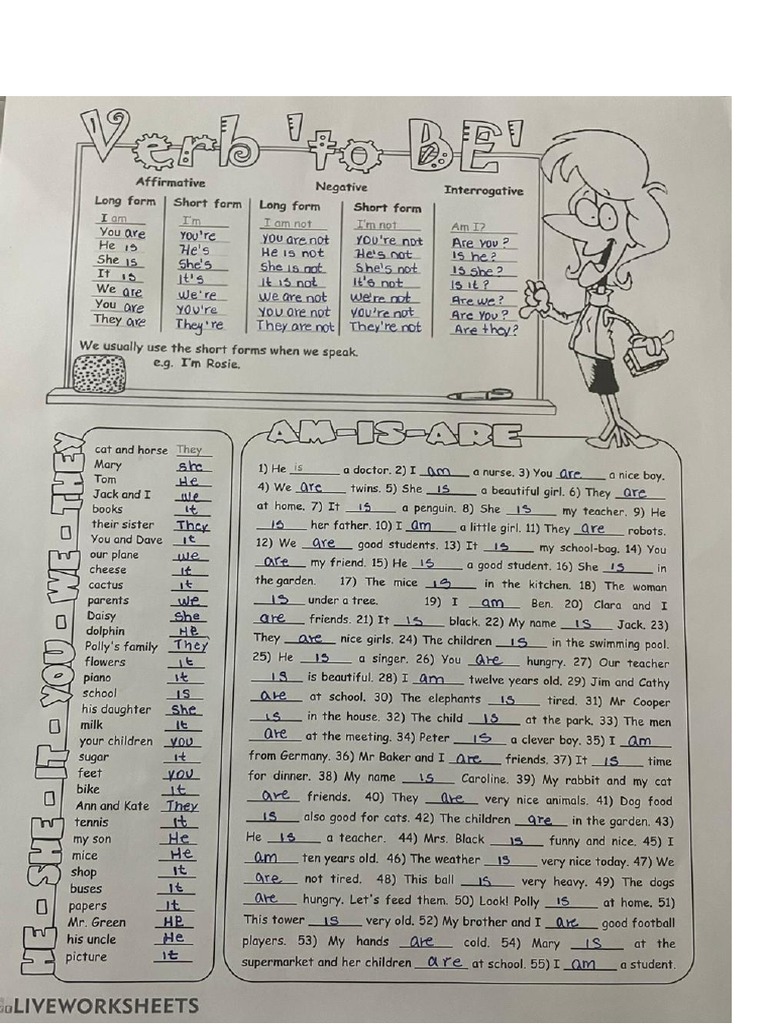 Verb 'to BE'
Affirmative Negative Interrogative
Long form Short form Long form Short form
I am I'm I am not I'm not Am I?
You are You're You are not You're not Are You?
He is He's He is not He's not Is he?
She is She's She is not She's not Is she?
It is It's It is not It's not Is it?
We are We're We are not We're not Are we?
You are You're You are not You're not Are You?
They are They're They are not They're not Are they?
We usually use the short forms when we speak.
e.g. I'm Rosie.
HE - SHE - IT - YOU - WE - THEY
cat and horse They
Mary she
Tom He
Jack and I we
books it
their sister They
You and Dave it
our plane we
cheese it
cactus it
parents we
Daisy she
dolphin He
Polly's family They
flowers it
piano it
school is
his daughter she
milk it
your children you
sugar it
feet you
bike it
Ann and Kate They
tennis it
my son He
mice He
shop it
buses it
papers it
Mr. Green He
his uncle He
picture it
AM-IS-ARE
1) He is a doctor. 2) I am a nurse. 3) You are a nice boy.
4) We are twins. 5) She is a beautiful girl. 6) They are
at home. 7) It is a penguin. 8) She is my teacher. 9) He
is her father. 10) I am a little girl. 11) They are robots.
12) We are good students. 13) It is my school-bag. 14) You
are my friend. 15) He is a good student. 16) She is in
the garden. 17) The mice is in the kitchen. 18) The woman
is under a tree. 19) I am Ben. 20) Clara and I
are friends. 21) It is black. 22) My name is Jack. 23)
They are nice girls. 24) The children is in the swimming pool.
25) He is a singer. 26) You are hungry. 27) Our teacher
is is beautiful. 28) I am twelve years old. 29) Jim and Cathy
are at school. 30) The elephants is tired. 31) Mr Cooper
is in the house. 32) The child is at the park. 33) The men
are at the meeting. 34) Peter is a clever boy. 35) I am
from Germany. 36) Mr Baker and I are friends. 37) It is time
for dinner. 38) My name is Caroline. 39) My rabbit and my cat
are friends. 40) They are very nice animals. 41) Dog food
is also good for cats. 42) The children are in the garden. 43)
He is a teacher. 44) Mrs. Black is funny and nice. 45) I
am ten years old. 46) The weather is very nice today. 47) We
are not tired. 48) This ball is very heavy. 49) The dogs
are hungry. Let's feed them. 50) Look! Polly is at home. 51)
This tower is very old. 52) My brother and I are good football
players. 53) My hands are cold. 54) Mary is at the
supermarket and her children are at school. 55) I am a student.
LIVEWORKSHEETS